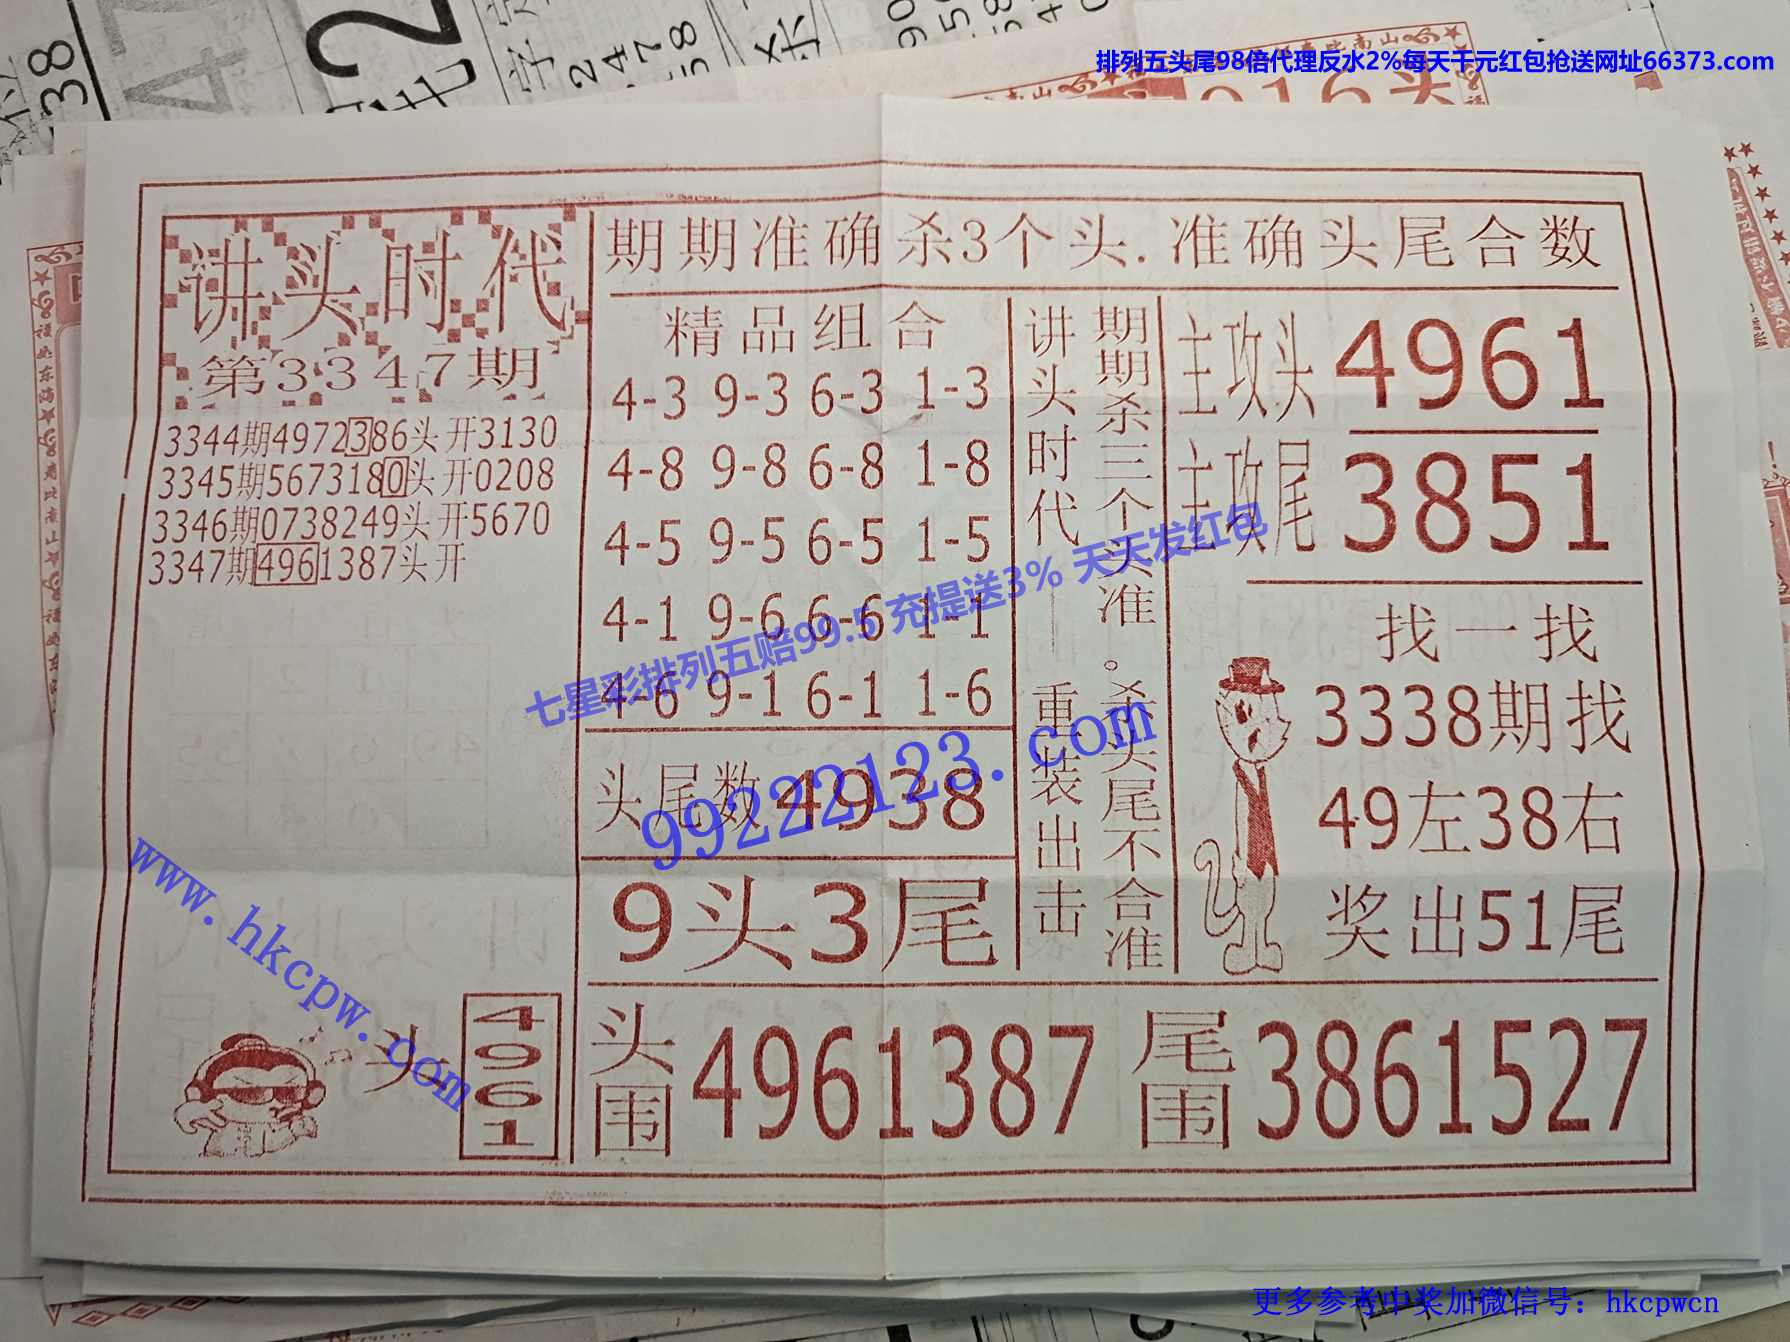 排列五头尾98倍代理反水2%每天千元红包抢送网址66373.com
讲头时代
第3347期
3344期4972386头开3130
3345期5673180头开0208
3346期0738249头开5670
3347期4961387头开
头
4961
期期准确杀3个头.准确头尾合数
精品组合
4-3 9-3 6-3 1-3
4-8 9-8 6-8 1-8
4-5 9-5 6-5 1-5
4-1 9-6 6-6 1-1
4-6 9-1 6-1 1-6
头尾数4938
9头3尾
讲头时代——重装出击
期期杀三个头准。杀头尾不合准
主攻头 4961
主攻尾 3851
找一找
3338期找
49左38右
奖出51尾
头围 4961387 尾围 3861527
七星彩排列五赔99.5 充提送3% 天天发红包
99222123.com
www.hkcpw.com
更多参考中奖加微信号：hkcpwcn